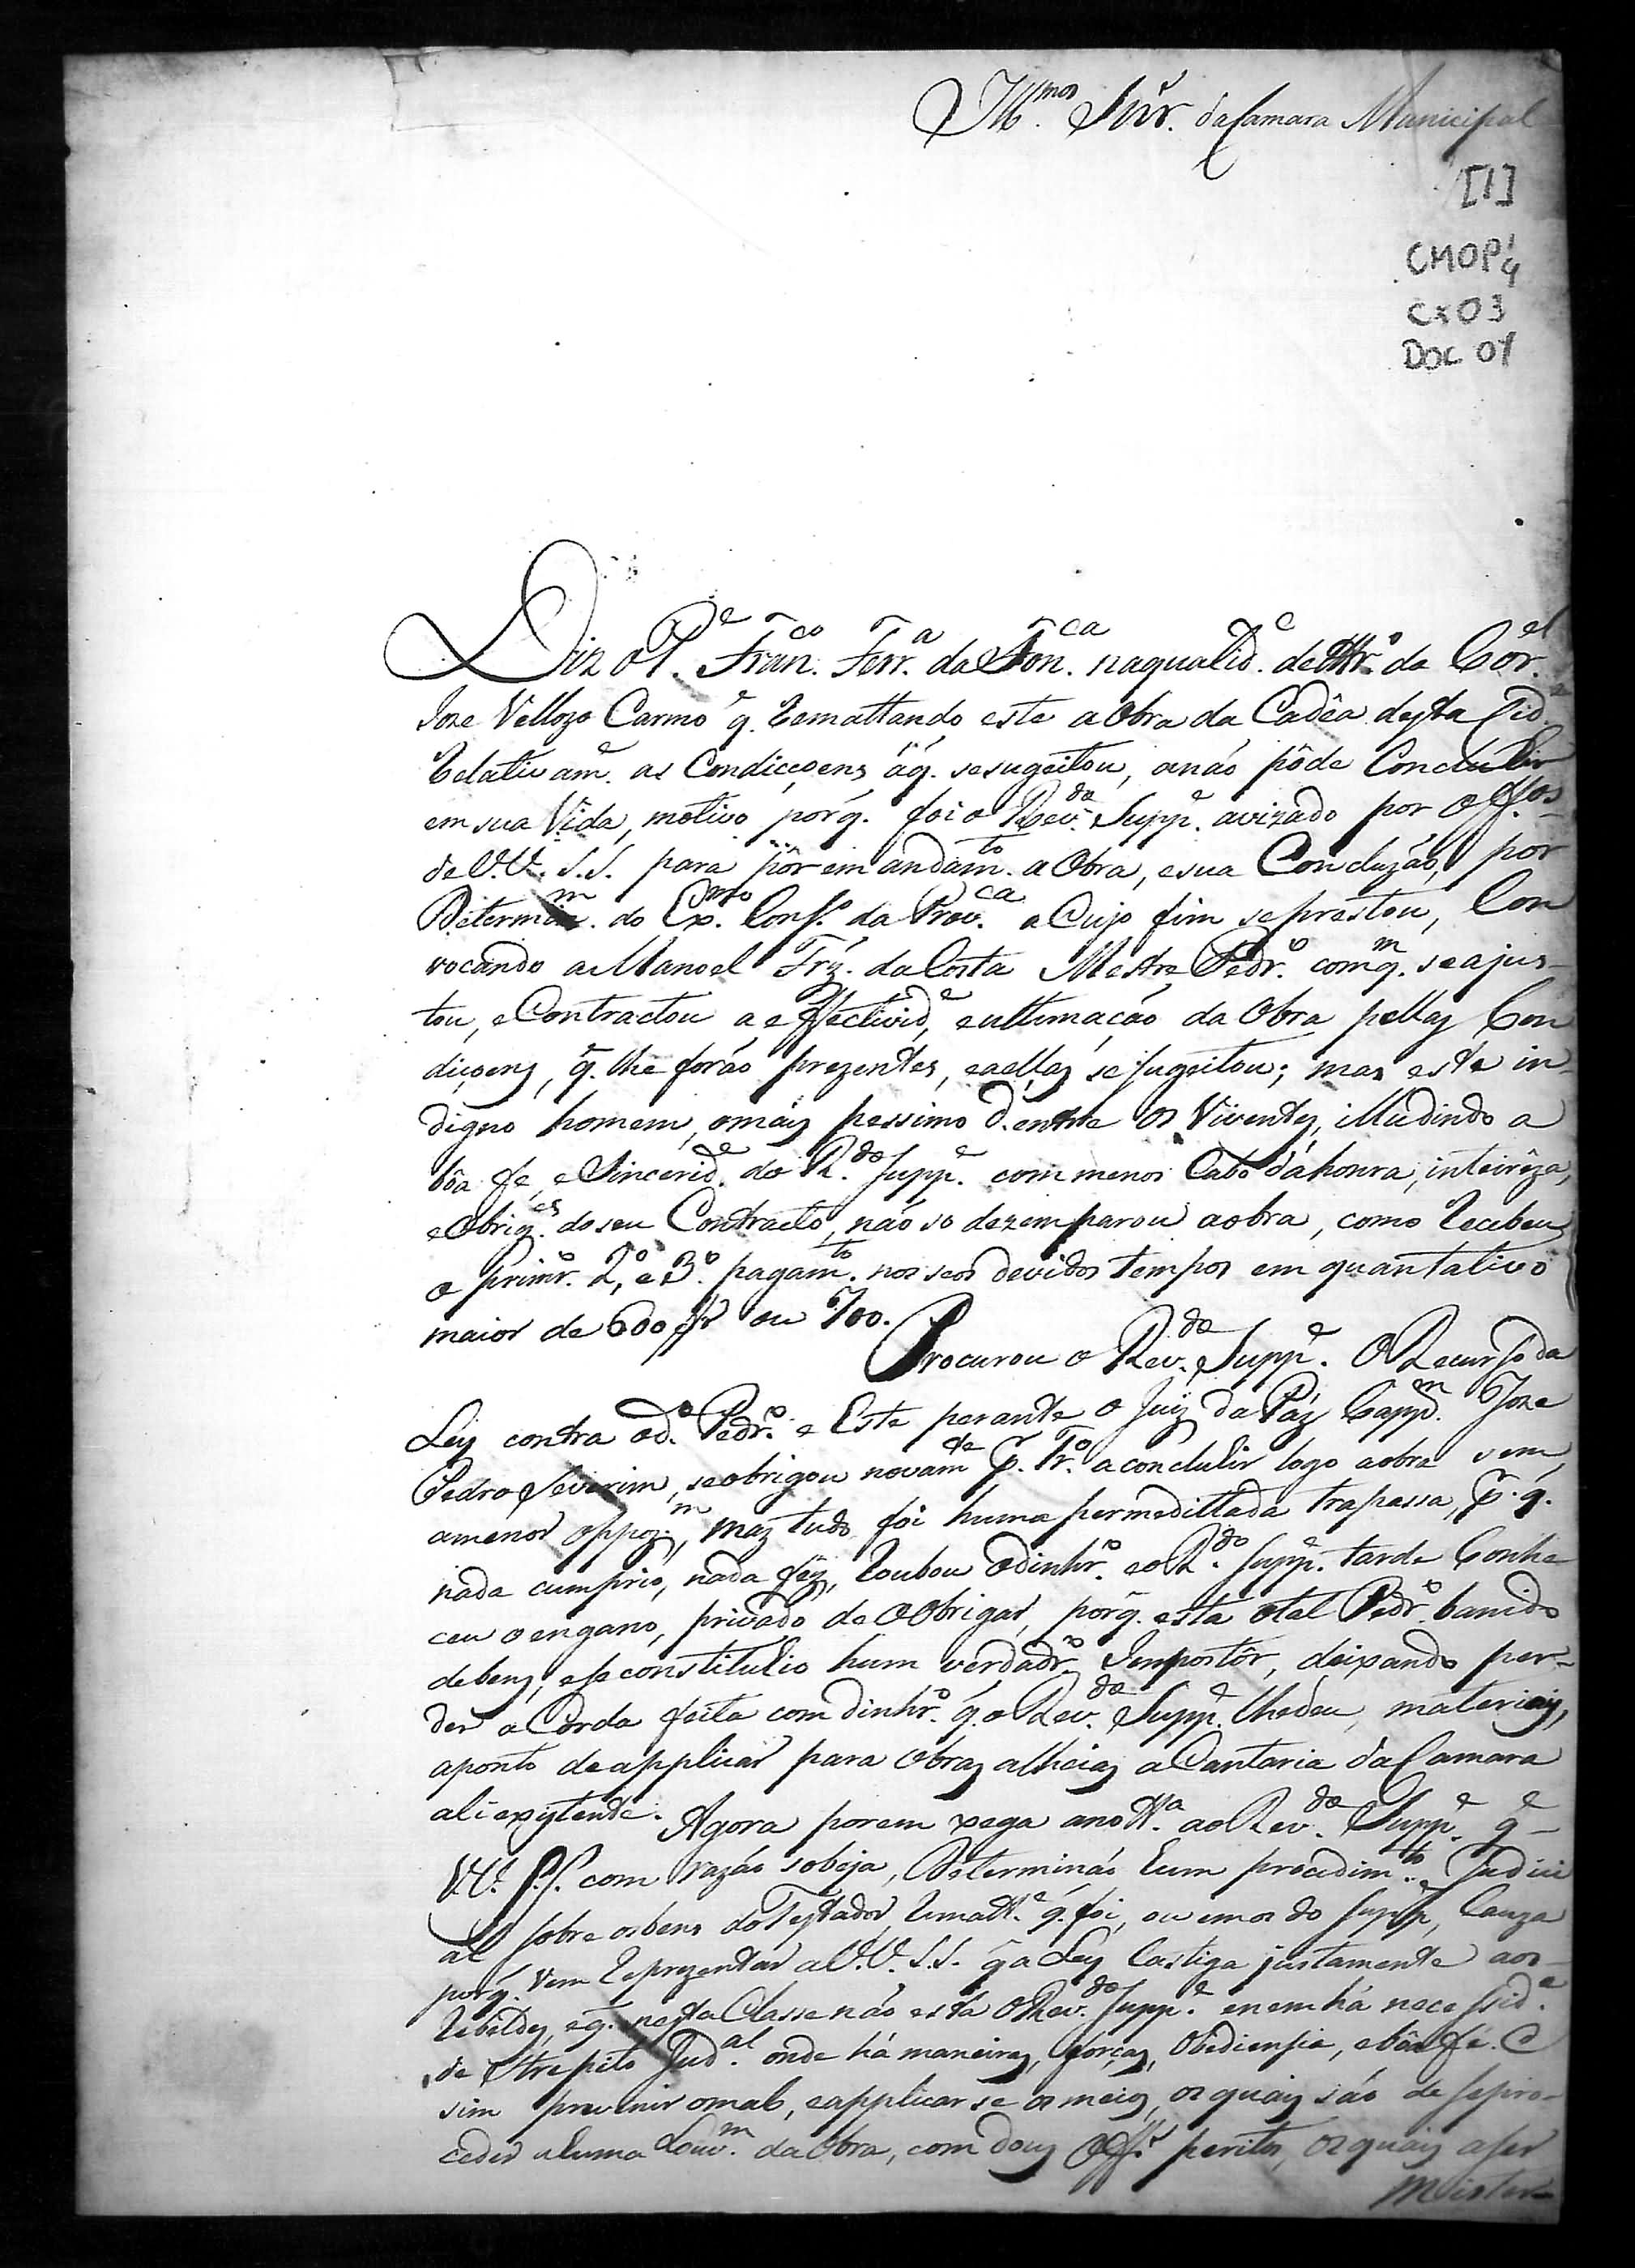 Ill.mos Snr. da Camara Municipal
[1]
CMOP
Cx03
Doc 07
Diz o P.e Fran.co Ferr.a da Fon.ca na qualid.e de Ttr.o do Cor.el
Joze Vellozo Carmo q. Remattando este a Obra da Cadêa desta Cid.e
Relativam.e as Condiççoens áq. se sugeitou, a não pôde Concluhir
em sua Vida, motivo porq. foi o Rev.do Supp.e avizado por Off.os
de V.V. S.S. para pôr em andam.to a Obra, e sua Concluzão, por
Determin.m do Ex.mo Cons.o da Prov.ca a Cujo fim se prestou, Con
vocando a Manoel Frz. da Costa Mestre Pedr.o com q.m se ajus-
tou, e Contractou a effectivid.e, e ultimação da Obra pellas Con
diçoens, q. lhe forão prezentes, e a ellas se sugeitou; mas este in-
digno homem, o mais pessimo d'entre os Viventes, illudindo a
bôa fe, e Sincerid.e do R.do Supp.e com menos Cabo da honra, inteirêza,
e Obrig.es do seu Contracto, não so dezemparou a obra, como Recebeu
o primr.o 2.o, e 3.o pagam.to nos seos devidos tempos em quantativo
maior de 600$ ou 700.
Procurou o Rev.do Supp.e O Recurso da
Ley contra o d.o Pedr.o e Este perante o Juiz da Paz Capp.m Joze
Pedro Severim, se obrigou novam.te p.r Tr.o a concluhir logo a obra sem
a menor oppoz.m, mas tudo foi huma permedittada trapassa, p.r q.
nada cumprio, nada fêz, Roubou o dinhr.o e o R.do Supp.e tarde Conhe
ceu o engano, privado de o Obrigar, porq. está o tal Pedr.o banido
de bens, e se constituhio hum verdadr.o Impostôr, deixando per-
der a Corda feita com dinhr.o q. o Rev.do Supp.e lhe deu, materiais,
aponto de applicar para Obras alheias a Cantaria da Camara
ali existente. Agora porem xega a not.a ao Rev.do Supp.e q.e
V.V. S.S. com razão sobeja, Determinão hum procedim.to Judici
al sobre os bens do Testador, Rematt.e q. foi, ou em os do Supp.e, Cauza
porq. Vem Reprezentar a V.V. S.S. q a Ley Castiga justamente aos
Rebeldes, e q. nesta Classe não está o Rev.do Supp.e e nem há necessid.e
de Strepito Jud.al onde há maneiras, forças, Obediensia, e bôa fé. E
sim previnir o mal, e applicar se os meios, os quais são de se pro-
ceder a huma Louv.m da Obra, com dous Off.s peritos, os quais a ser
Mister